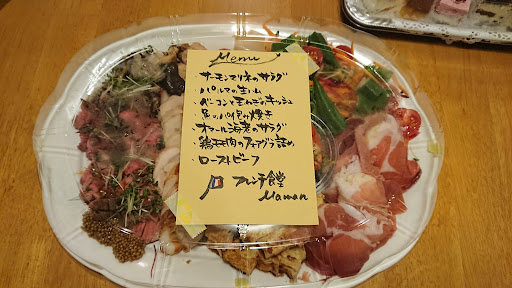 Menu
・サーモンマリネのサラダ
・パルマの生ハム
・ベーコンと玉ねぎのキッシュ
・魚のパイ包み焼き
・オマール海老のサラダ
・鶏モモ肉のフォアグラ詰め
・ローストビーフ
フレンチ食堂
Maman